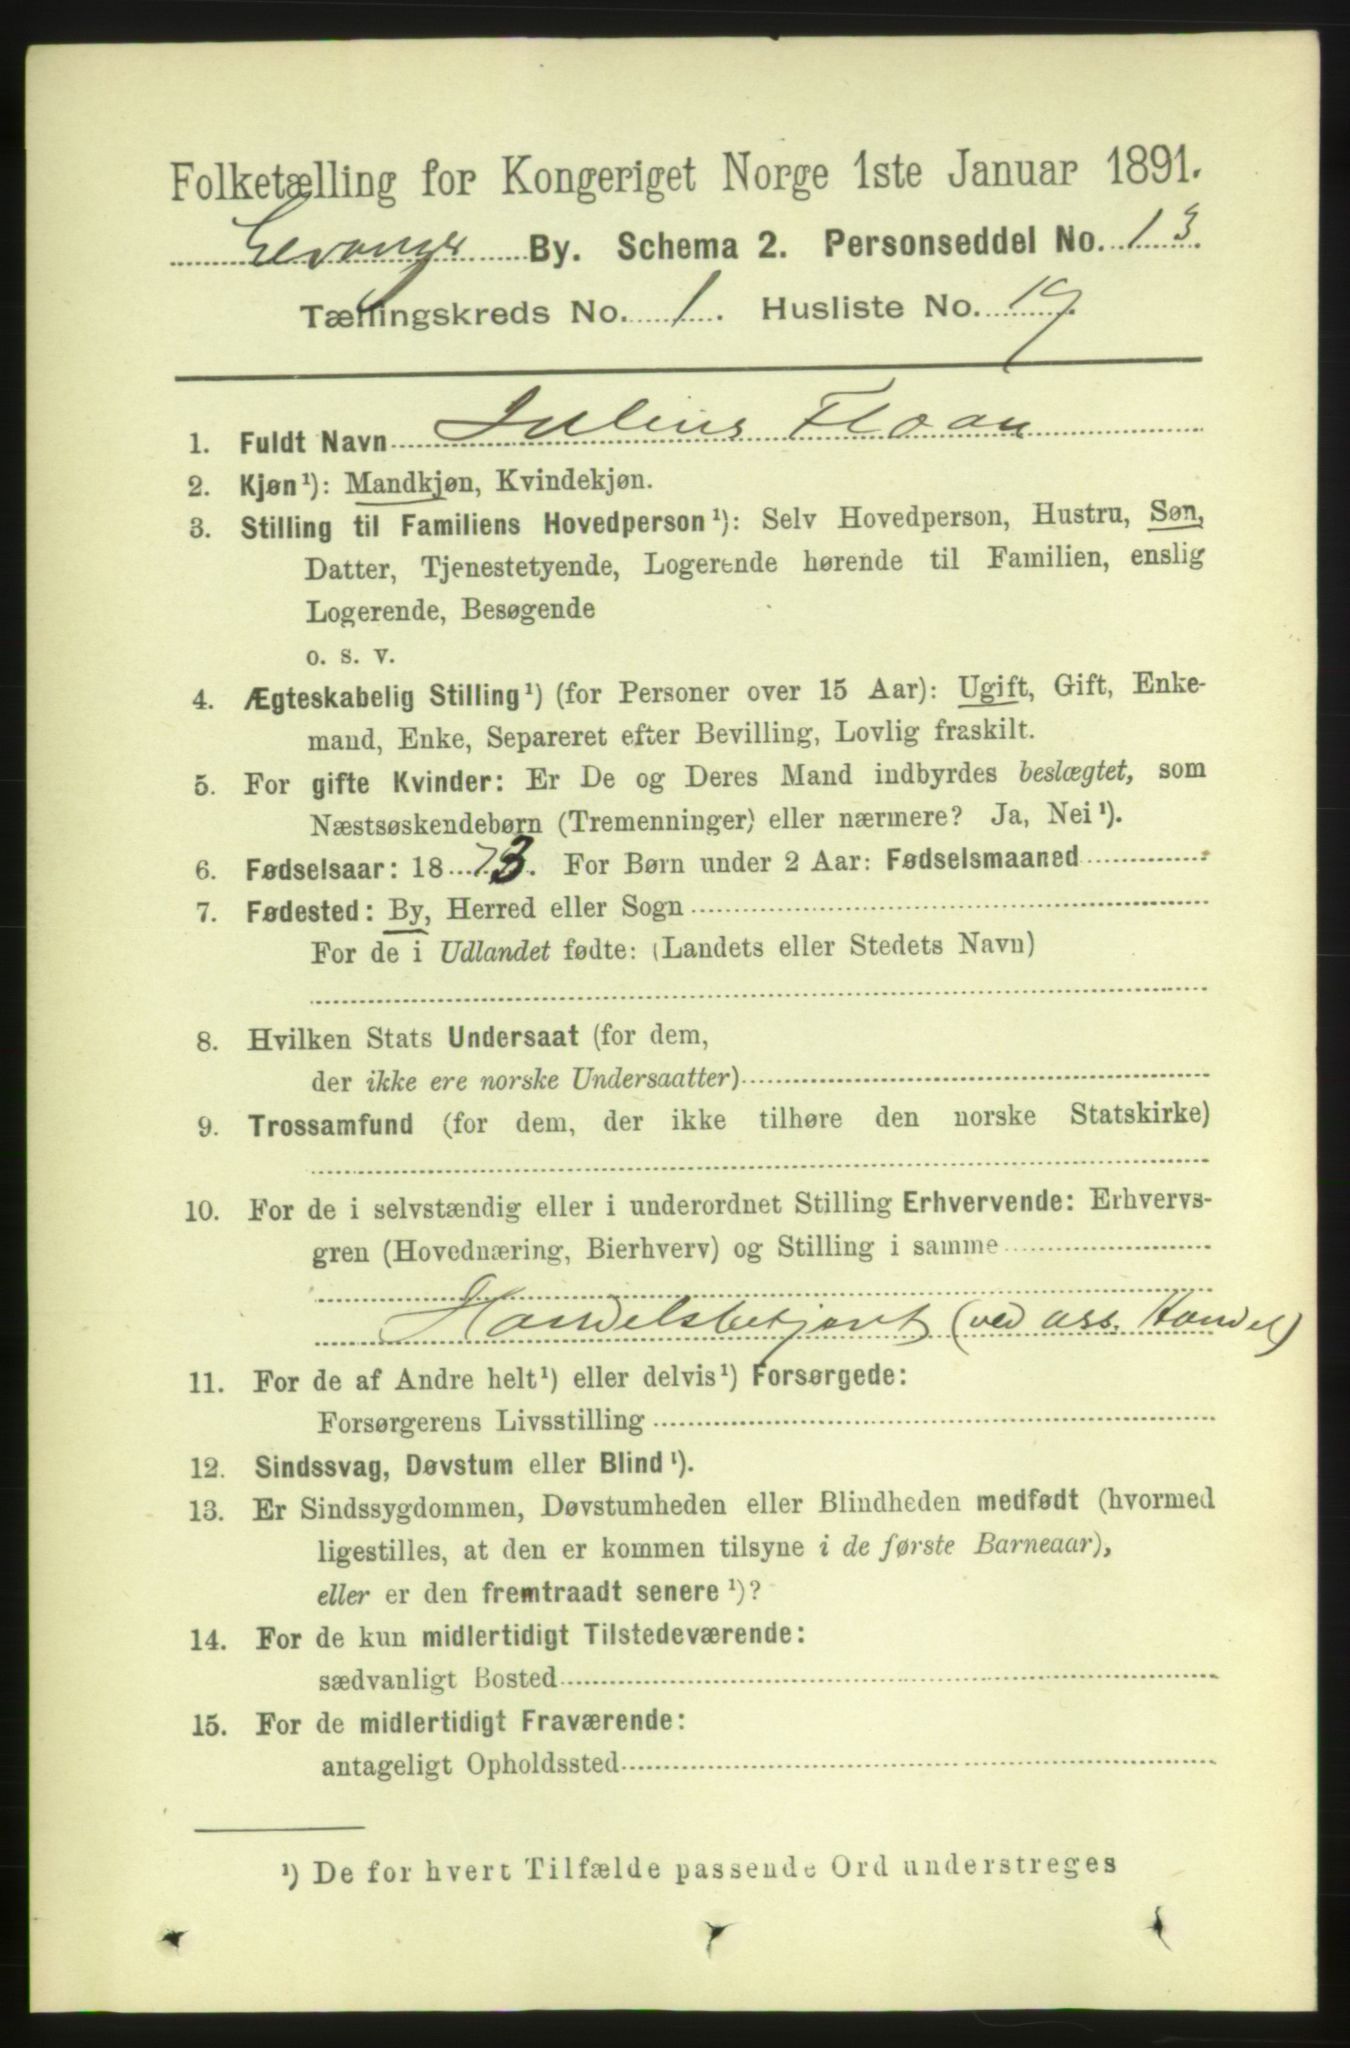 Folketælling for Kongeriget Norge 1ste Januar 1891.
Levanger By. Schema 2. Personseddel No. 13
Tællingskreds No. 1. Husliste No. 19
1. Fuldt Navn Julius Floan
2. Kjøn¹): Mandkjøn, Kvindekjøn.
3. Stilling til Familiens Hovedperson¹): Selv Hovedperson, Hustru, Søn,
Datter, Tjenestetyende, Logerende hørende til Familien, enslig
Logerende, Besøgende
o. s. v.
4. Ægteskabelig Stilling¹) (for Personer over 15 Aar): Ugift, Gift, Enke-
mand, Enke, Separeret efter Bevilling, Lovlig fraskilt.
5. For gifte Kvinder: Er De og Deres Mand indbyrdes beslægtet, som
Næstsøskendebørn (Tremenninger) eller nærmere? Ja, Nei¹).
6. Fødselsaar: 1873. For Børn under 2 Aar: Fødselsmaaned
7. Fødested: By, Herred eller Sogn
For de i Udlandet fødte: (Landets eller Stedets Navn)
8. Hvilken Stats Undersaat (for dem,
der ikke ere norske Undersaatter)
9. Trossamfund (for dem, der ikke tilhøre den norske Statskirke)
10. For de i selvstændig eller i underordnet Stilling Erhvervende: Erhvervs-
gren (Hovednæring, Bierhverv) og Stilling i samme
Handelsbetjent (ved ass. Handel)
11. For de af Andre helt¹) eller delvis¹) Forsørgede:
Forsørgerens Livsstilling
12. Sindssvag, Døvstum eller Blind¹).
13. Er Sindssygdommen, Døvstumheden eller Blindheden medfødt (hvormed
ligestilles, at den er kommen tilsyne i de første Barneaar),
eller er den fremtraadt senere¹)?
14. For de kun midlertidigt Tilstedeværende:
sædvanligt Bosted
15. For de midlertidigt Fraværende:
antageligt Opholdssted
¹) De for hvert Tilfælde passende Ord understreges